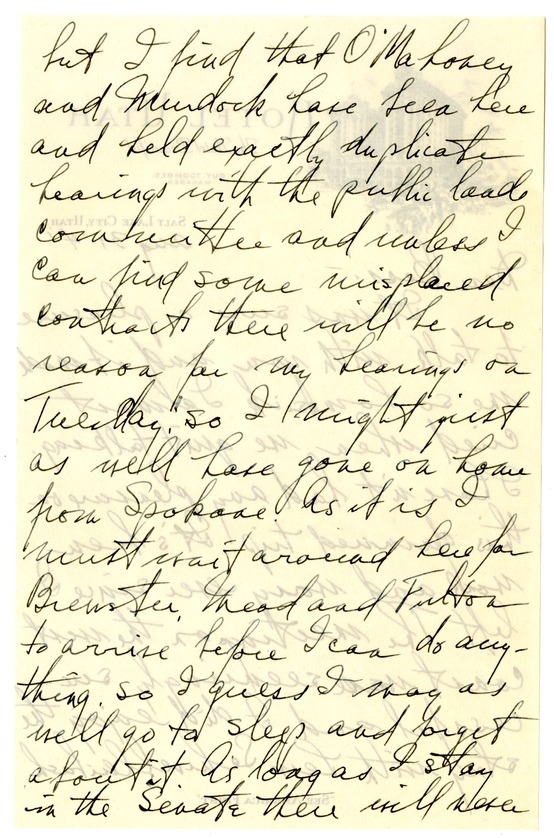 but I find that O'Mahoney
and Murdock have been here
and held exactly duplicate
hearings with the public lands
committee and unless I
can find some misplaced
contracts there will be no
reason for my hearings on
Tuesday. so I might just
as well have gone on home
from Spokane. As it is I
must wait around here for
Brewster, Mead and Fulton
to arrive before I can do any-
thing. so I guess I may as
well go to sleep and forget
about it. As long as I stay
in the Senate there will never